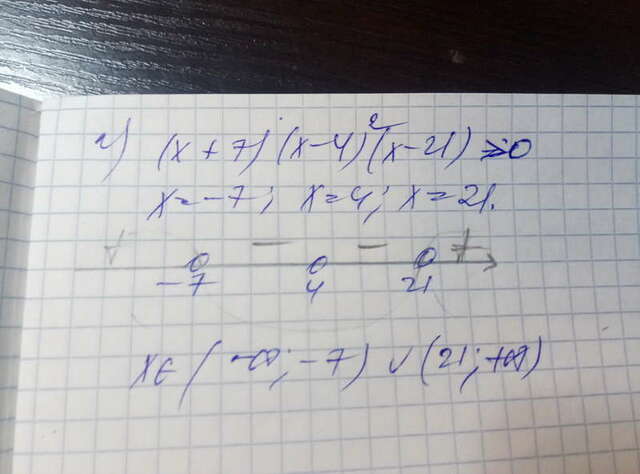 г) (x+7)(x-4)²(x-21)>0
x=-7; x=4; x=21.
+ − − +
-7 4 21
x∈(-∞;-7)∪(21;+∞)